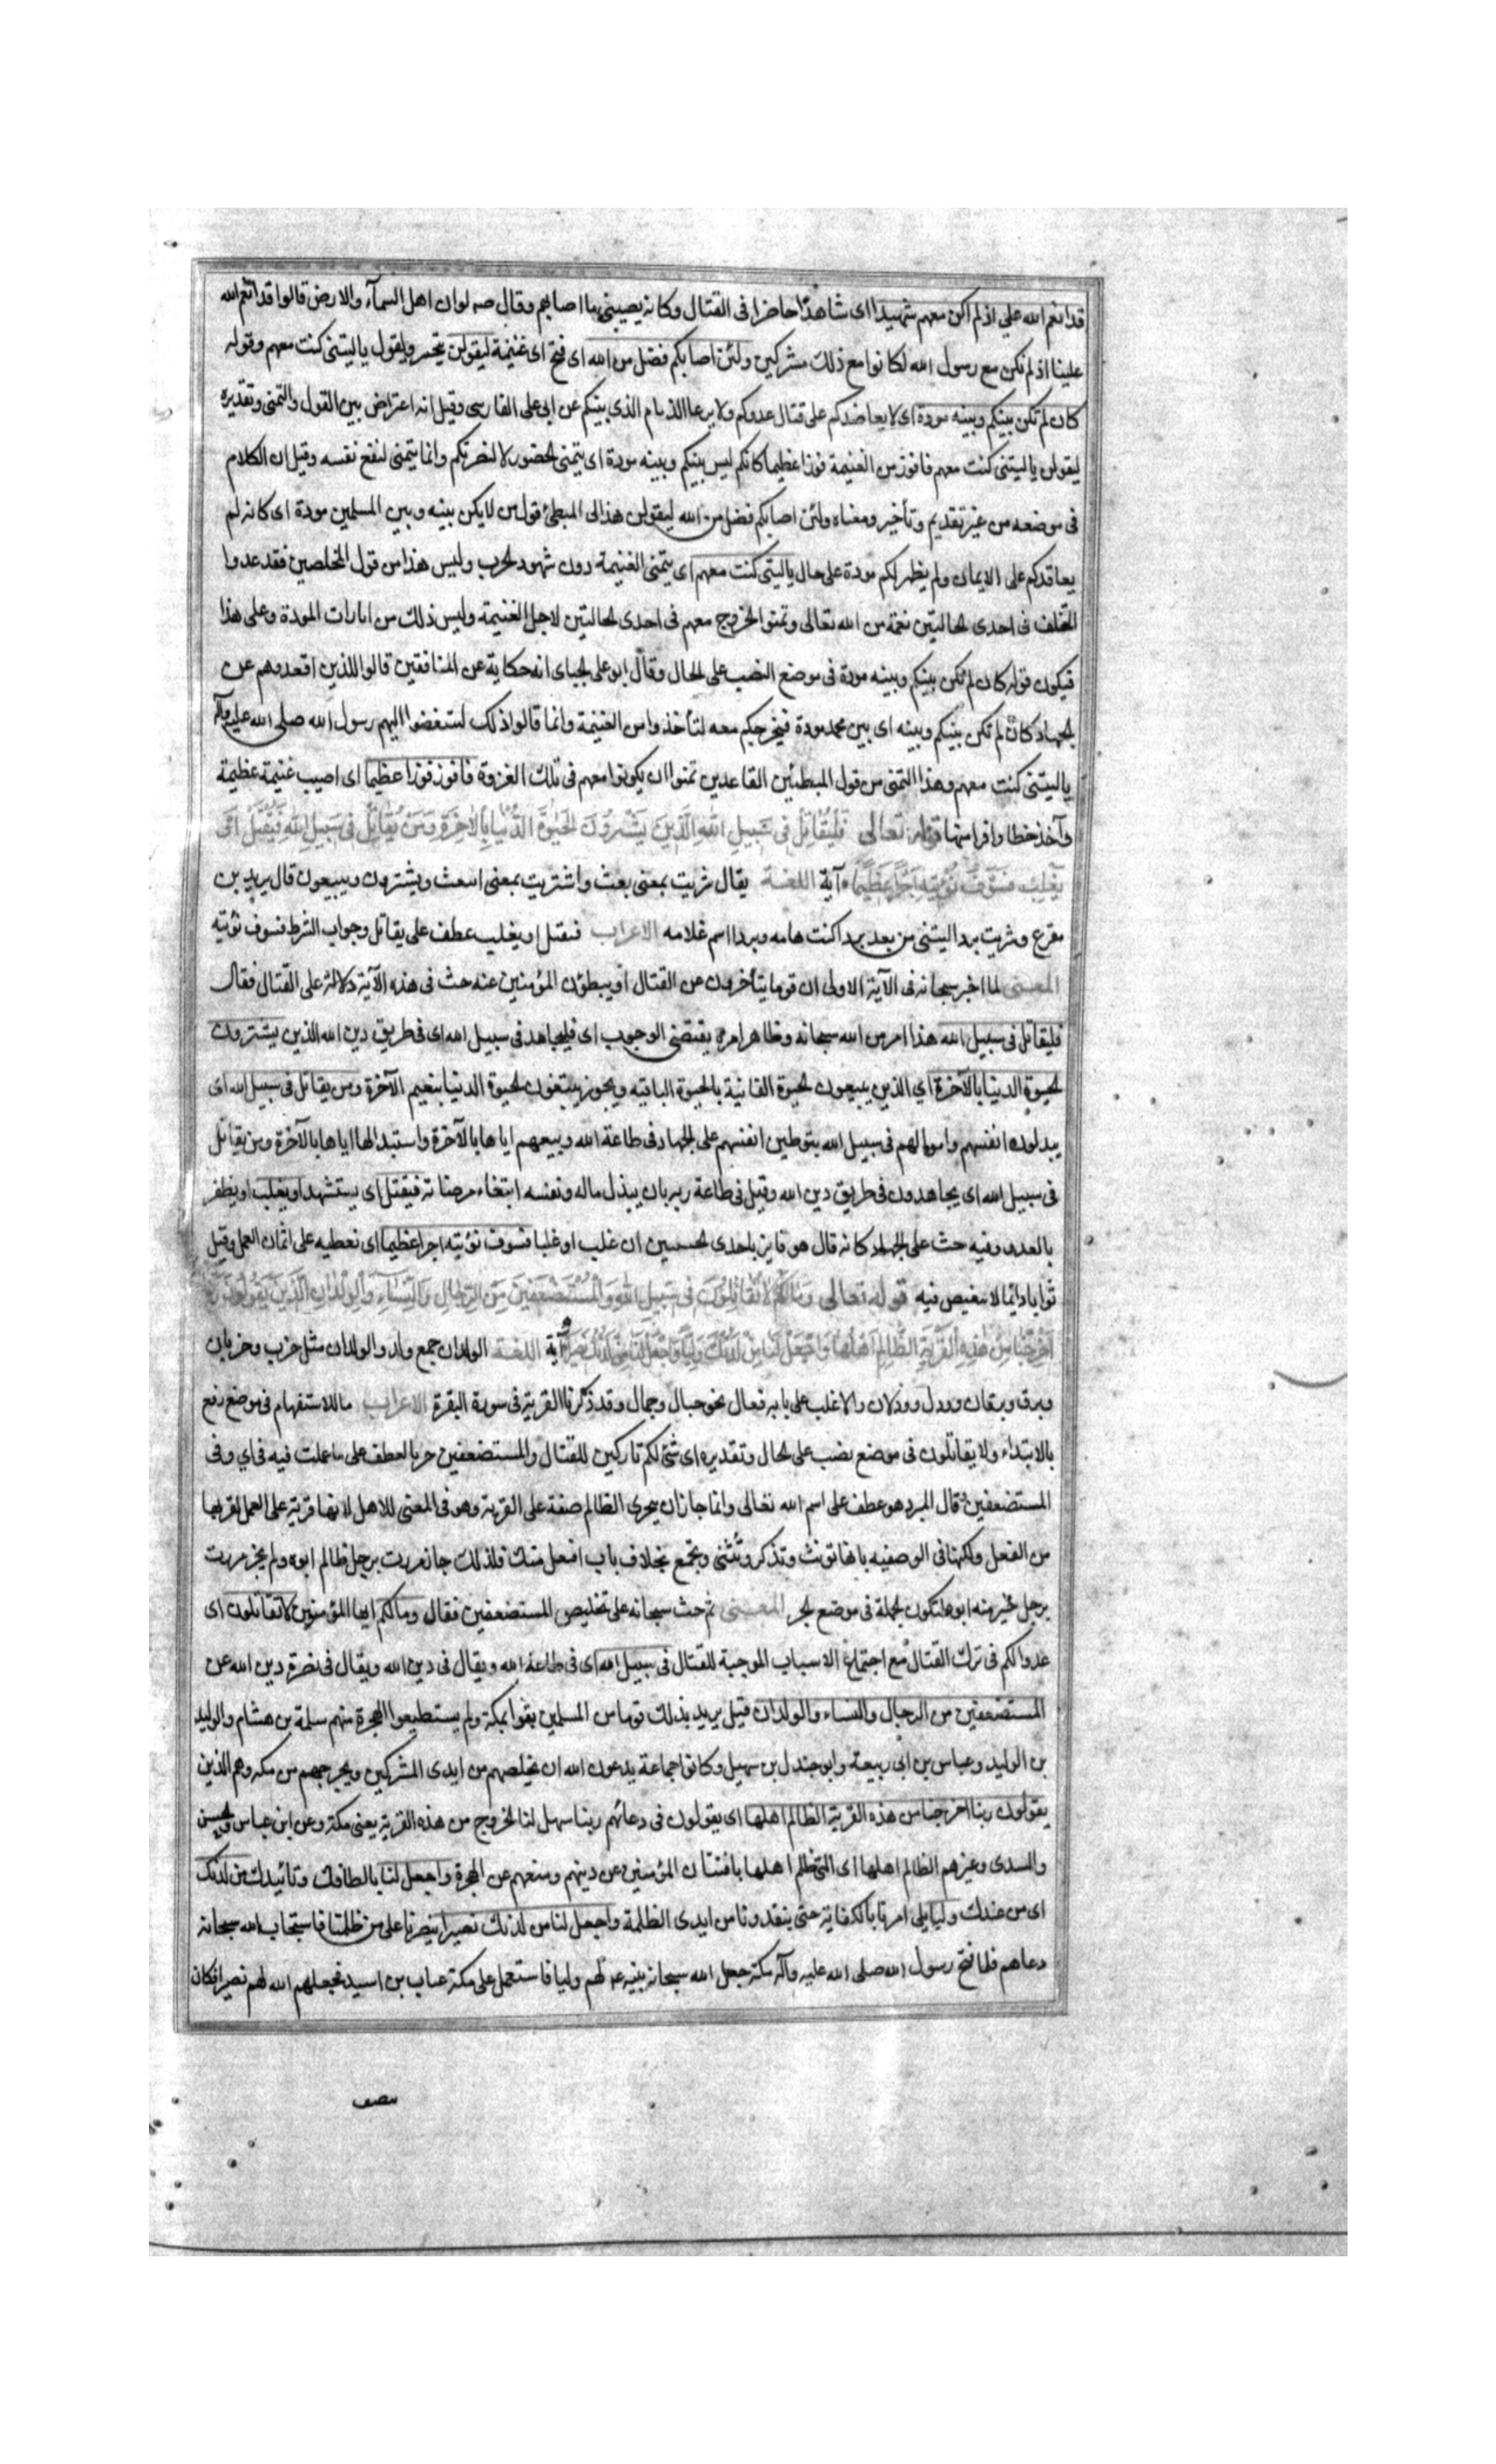 قد انعم الله علي اذ لم اكن معهم شهيدا اى شاهدا حاضرا فى القتال وكان يصيبني ما اصابهم وقال صه لو ان اهل السمآء والارض قالوا قد انعم الله
علينا اذ لم نكن مع رسول الله لكانوا مع ذلك مشركين ولئن اصابكم فضل من الله اى فتح اى غنيمة ليقولن يتحسر ويقول ياليتنى كنت معهم وقوله
كان لم تكن بينكم وبينه مودة اى لا يعاضدكم على قتال عدوكم ولا يرعا الذمام الذى بينكم عن ابى على الفارسى وقيل انه اعتراض بين القول والتمنى وتقديره
ليقولن ياليتنى كنت معهم فافوز من الغنيمة فوزا عظيما كانكم ليس بينكم وبينه مودة اى يتمنى الحضور لا لنصرتكم وانما يتمنى لنفع نفسه وقيل ان الكلام
فى موضعه من غير تقديم وتأخير ومعناه ولئن اصابكم فضل من الله ليقولن هذا المبطئ قول من لا يكن بينه وبين المسلمين مودة اى كانه لم
يعاقدكم على الايمان ولم يظهر لكم مودة على حال ياليتنى كنت معهم اى يتمنى الغنيمة دون شهود الحرب وليس هذا من قول المخلصين فقد عدوا
التخلف فى احدى الحالتين نعمة من الله تعالى وتمنوا الخروج معهم فى احدى الحالتين لاجل الغنيمة وليس ذلك من امارات المودة وعلى هذا
فيكون قوله كان لم تكن بينكم وبينه مودة فى موضع النصب على الحال وقال ابو على الجباى انه حكاية عن المنافقين قالوا للذين اقعدوهم عن
الجهاد كان لم تكن بينكم وبينه اى بين محمد مودة فيخرجكم معه لتأخذوا من الغنيمة وانما قالوا ذلك لتبغضوا اليهم رسول الله صلى الله عليه وآله
ياليتنى كنت معهم وهذا التمنى من قول المبطئين القاعدين تمنوا ان يكونوا معهم فى تلك الغزوة فافوز فوزا عظيما اى اصيب غنيمة عظيمة
وآخذ حظا وافرا منها قوله تعالى فَلْيُقَاتِلْ فى سَبِيلِ اللهِ الَّذِينَ يَشْرُونَ الحَيٰوةَ الدُّنْيَا بِالآخِرَةِ وَمَن يُقَاتِلْ فى سَبِيلِ اللهِ فَيُقْتَلْ اَوْ
يَغْلِبْ فَسَوْفَ نُؤْتِيهِ اَجْرًا عَظِيمًا آية اللغة يقال شريت بمعنى بعت واشتريت بمعنى ابتعت ويشترون ويبيعون قال يزيد بن
مفرع وشريت بردا ليتنى من بعد برد اكنت هامه وبردا اسم غلامه الاعراب فيقتل او يغلب عطف على يقاتل وجواب الشرط فسوف نؤتيه
المعنى لما اخبر سبحانه فى الآية الاولى ان قوما يتأخرون عن القتال او يبطؤن المؤمنين عنه حث فى هذه الآية دلالة على القتال فقال
فليقاتل فى سبيل الله هذا امر من الله سبحانه وظاهر امره يقتضى الوجوب اى فليجاهد فى سبيل الله اى فى طريق دين الله الذين يشترون
الحيوة الدنيا بالآخرة اي الذين يبيعون الحيوة الفانية بالحيوة الباقيه ويجوز يبتغون الحيوة الدنيا بنعيم الآخرة ومن يقاتل فى سبيل الله اى
يبدلون انفسهم واموالهم فى سبيل الله بتوطين انفسهم على الجهاد فى طاعة الله وبيعهم اياها بالآخرة واستبدالها اياها بالآخرة ومن يقاتل
فى سبيل الله اى يجاهدون فى طريق دين الله وقيل فى طاعة ربه بان يبذل ماله ونفسه ابتغاء مرضاته فيقتل اى يستشهد او يغلب او يظفر
بالعدو وفيه حث على الجهاد كانه قال هو فايز باحدى الحسنيين ان غلب او غلبا فسوف نؤتيه اجرا عظيما اى نعطيه على اثمان العمل وقيل
ثوابا دائما لا تنغيص فيه قوله تعالى وَمَا لَكُمْ لَا تُقَاتِلُونَ فى سَبِيلِ اللهِ وَالْمُسْتَضْعَفِينَ مِنَ الرِّجَالِ وَالنِّسَاءِ وَالْوِلْدَانِ الَّذِينَ يَقُولُونَ رَبَّنَا
اَخْرِجْنَا مِنْ هٰذِهِ الْقَرْيَةِ الظَّالِمِ اَهْلُهَا وَاجْعَل لَنَا مِن لَدُنْكَ وَلِيًّا وَاجْعَل لَنَا مِن لَدُنْكَ نَصِيرًا آية اللغة الولدان جمع ولد والولدان مثل خرب وخربان
وبرق وبرقان وورل وورلان والاغلب على بابه فعال نحو جبال وجمال وقد ذكرنا القرية فى سورة البقرة الاعراب ما للاستفهام فى موضع رفع
بالابتداء ولا يقاتلون فى موضع نصب على الحال وتقديره اى شئ لكم تاركين للقتال والمستضعفين جر بالعطف على ما عملت فيه فى اي وفى
المستضعفين وقال المبرد هو عطف على اسم الله تعالى وانما جاز ان يجرى الظالم صفة على القرية وهو فى المعنى للاهل لانها قرية على العمل لقربها
من الفعل ولكنها فى الوصفيه بانها تونث وتذكر وتثنى وتجمع بخلاف باب افعل منك فلذلك جاز مررت برجل ظالم ابوه ولم يجز مررت
برجل خير منه ابوه لتكون الجملة فى موضع الجر المعنى ثم حث سبحانه على تخليص المستضعفين فقال ومالكم ايها المؤمنون لا تقاتلون اى
عذر لكم فى ترك القتال مع اجتماع الاسباب الموجبة للقتال فى سبيل الله اى فى طاعة الله ويقال فى دين الله ويقال فى نصرة دين الله عن
المستضعفين من الرجال والنساء والولدان قيل يريد بذلك قوما من المسلمين بقوا بمكة ولم يستطيعوا الهجرة منهم سلمة بن هشام والوليد
بن الوليد وعياس بن ابى ربيعة وابو جندل بن سهيل وكانوا جماعة يدعون الله ان يخلصهم من ايدى المشركين ويخرجهم من مكه وهم الذين
يقولون ربنا اخرجنا من هذه القرية الظالم اهلها اى يقولون فى دعائهم ربنا سهل لنا الخروج من هذه القرية يعنى مكة وعن ابن عباس والحسن
والسدى وغيرهم الظالم اهلها اى التى ظلم اهلها بافتتان المؤمنين عن دينهم ومنعهم عن الهجرة واجعل لنا بالطافك وتائيدك من لدنك
اى من عندك وليا يلى امرنا بالكفاية حتى ينقدونا من ايدى الظلمة واجعل لنا من لدنك نصيرا ينصرنا على من ظلمنا فاستجاب الله سبحانه
دعاهم فلما فتح رسول الله صلى الله عليه وآله مكة جعل الله سبحانه نبيه عم لهم وليا فاستعمل على مكة عتاب بن اسيد فجعلهم الله لهم نصيرا فكان